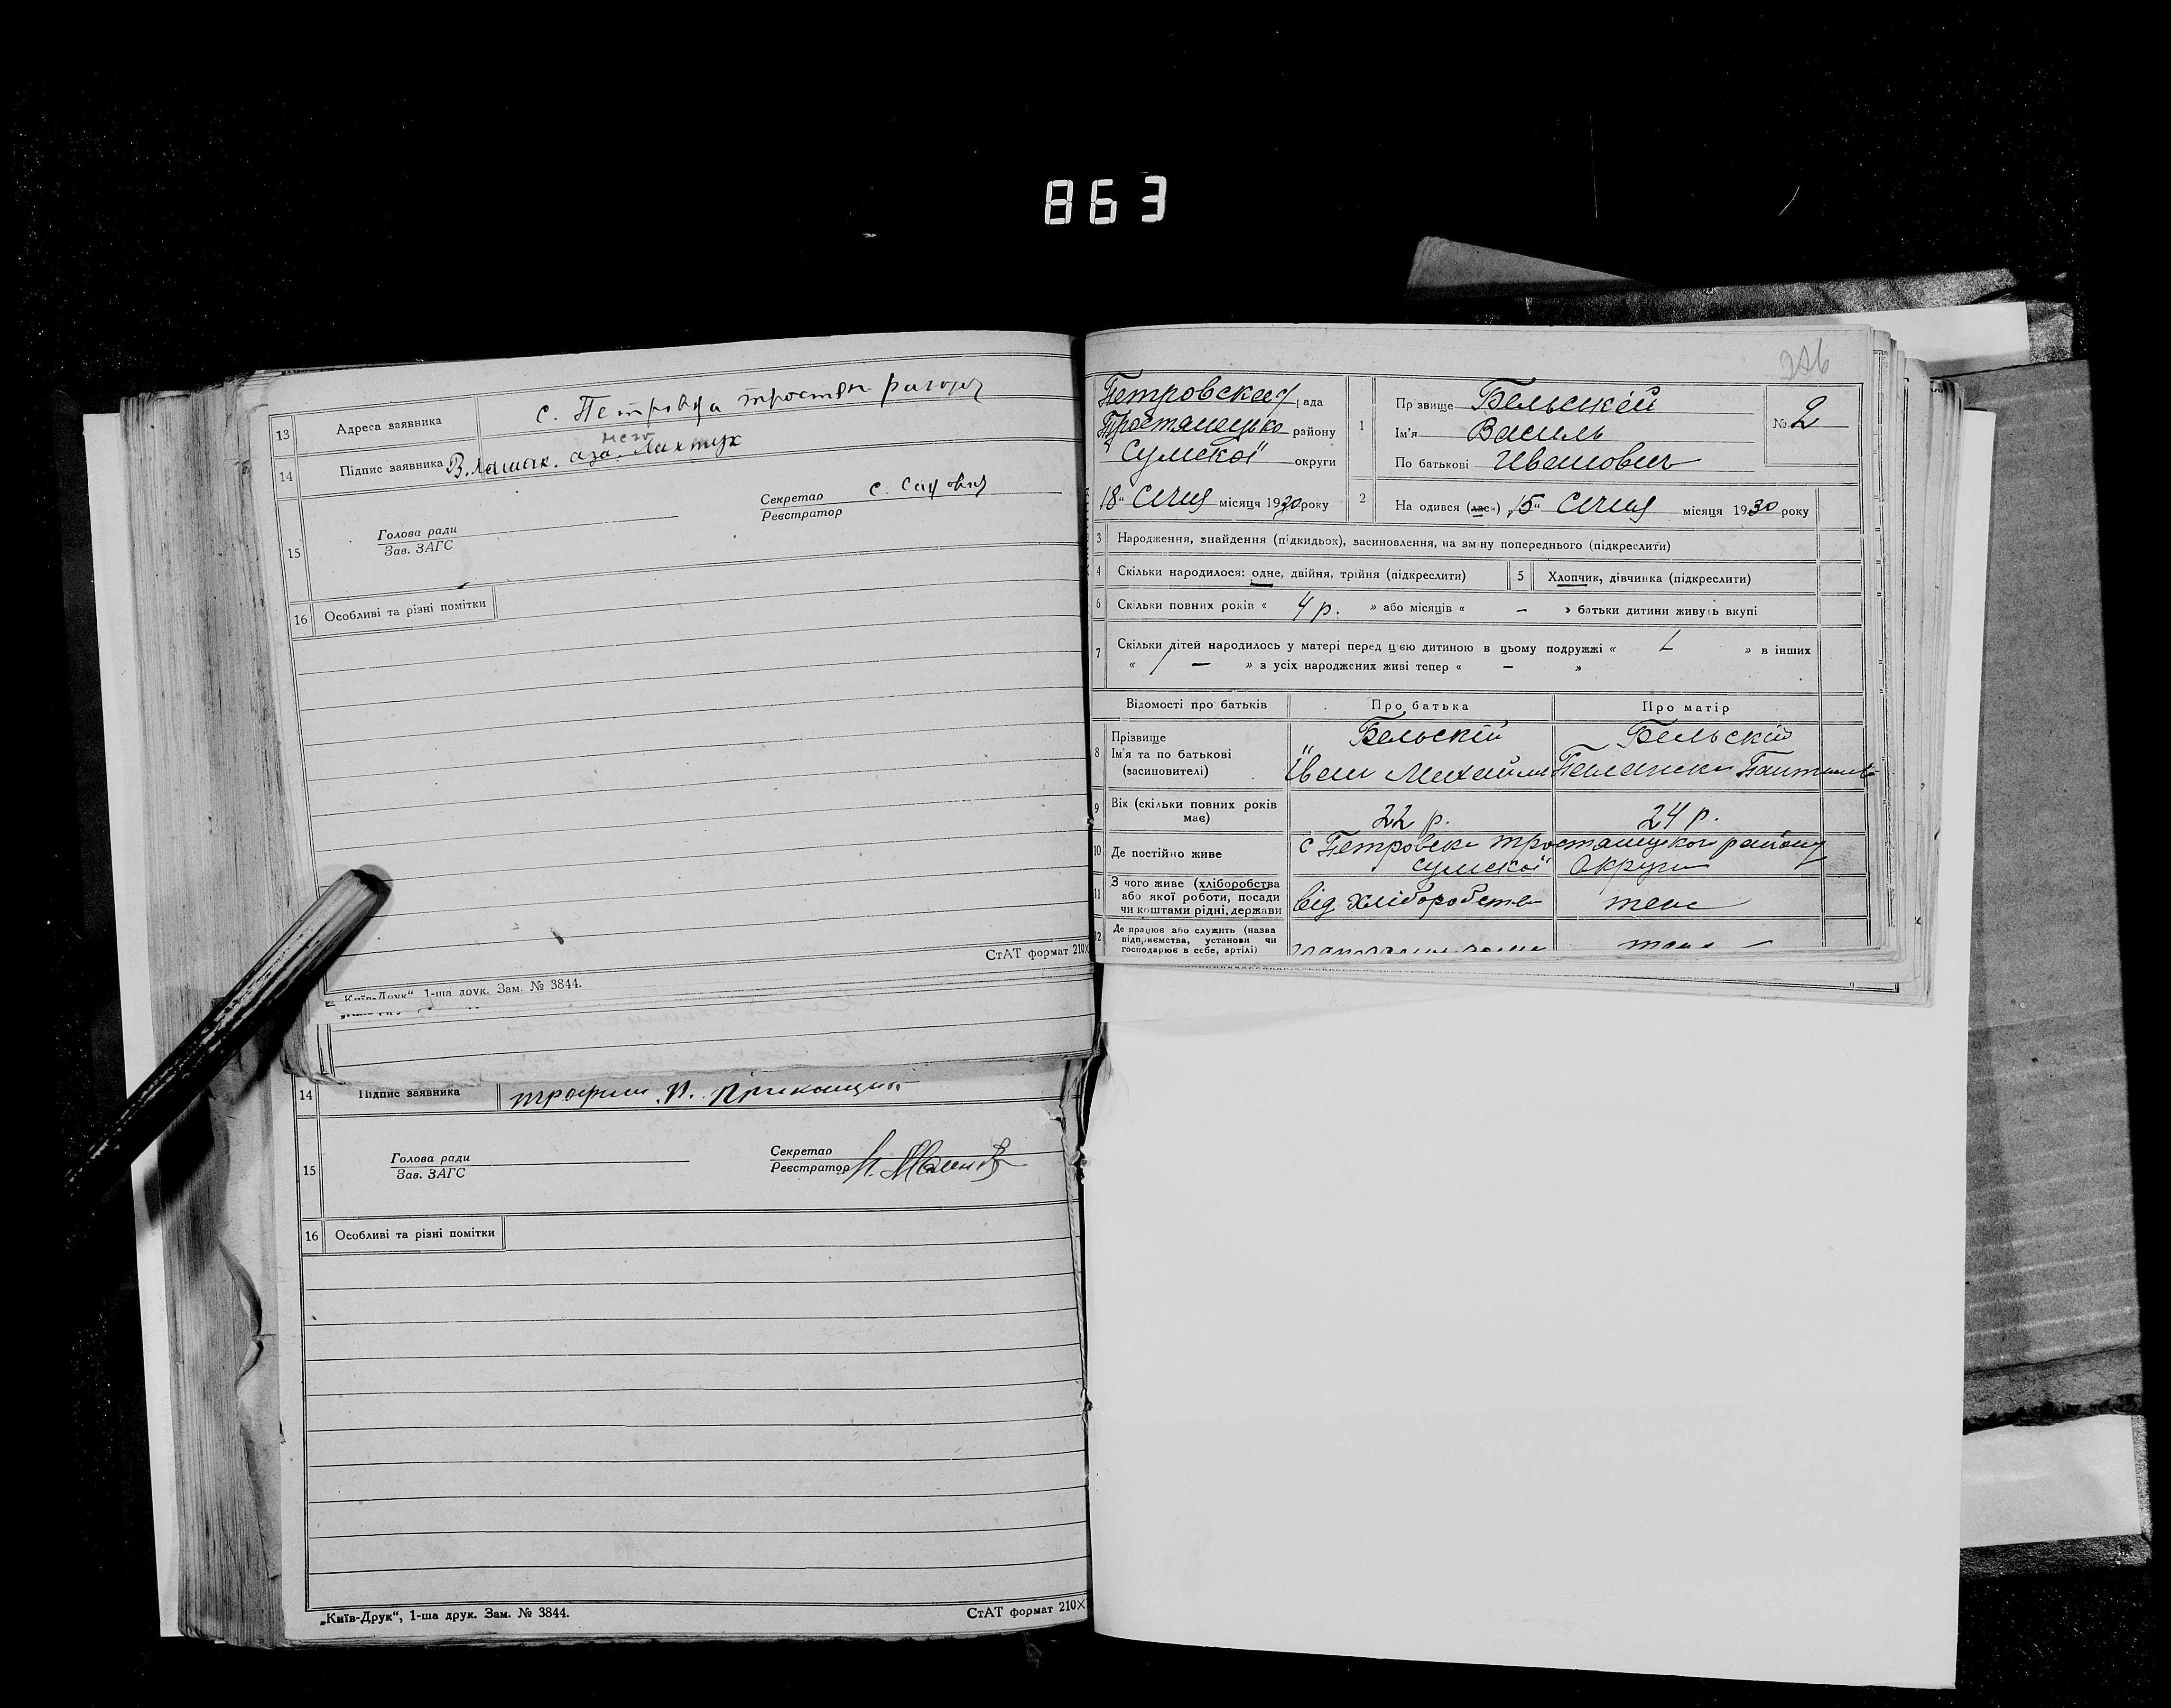 863
13 Адреса заявника с. Петровка тростян район
него
14 Підпис заявника В. Лашак. аза. Лахтух
15 Голова ради
Зав. ЗАГС
Секретар
Реєстратор
16 Особливі та різні помітки
СтАТ формат 210×
„Київ-Друк“, 1-ша друк. Зам. № 3844.
14 Підпис заявника
15 Голова ради
Зав. ЗАГС
Секретар
Реєстратор
16 Особливі та різні помітки
„Київ-Друк“, 1-ша друк. Зам. № 3844. СтАТ формат 210×
Петровская рада
Тростянецько району
Сумскої округи
18“ Січня місяця 1930 року
1 Прізвище Бельский
Ім'я Василь
По батькові Иванович
№ 2
2 Народився (лась) „15“ Січня місяця 1930 року
3 Народження, знайдення (підкидьок), засиновлення, на зміну попереднього (підкреслити)
4 Скільки народилося: одне, двійня, трійня (підкреслити) 5 Хлопчик, дівчинка (підкреслити)
6 Скільки повних років « 4 р. » або місяців « — » батьки дитини живуть вкупі
7 Скільки дітей народилось у матері перед цією дитиною в цьому подружжі « » в інших
« — » з усіх народжених живі тепер « — »
Відомості про батьків Про батька Про матір
8 Прізвище Бельскій Бельскій
Ім'я та по батькові
(засиновителі) Іван Михайлов
9 Вік (скільки повних років має) 22 р. 24 р.
10 Де постійно живе с Петровка тростянецкого району
Сумскої Округи
11 З чого живе (хліборобства
або якої роботи, посади
чи коштами рідні, держави від хліборобства теж
12 Де працює або служить (назва
підприємства, установи чи
господарює в себе, артілі) теж —